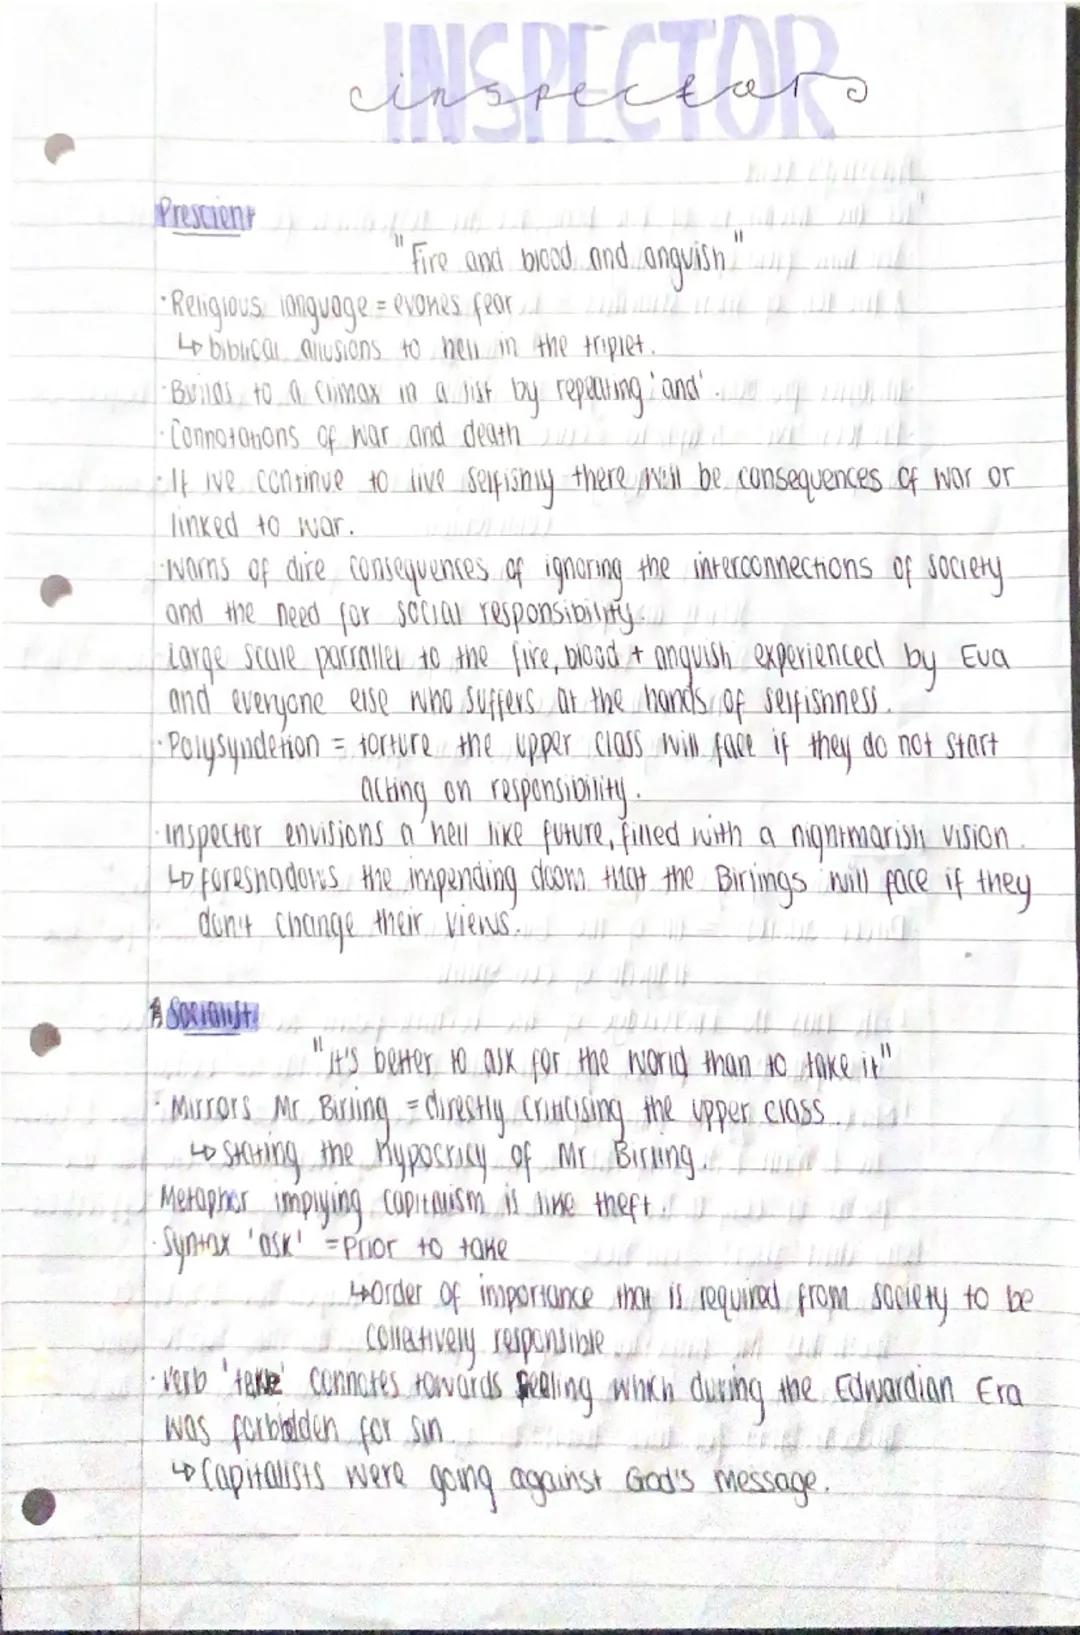 INSPECTOR
inspector
Prescient
"Fire and blood and anguish"
·Religious language = evokes fear
↳ biblical allusions to hell in the triplet.
·Builds to a climax in a list by repeating 'and'.
·Connotations of war and death
·If we continue to live selfishly there will be consequences of war or
linked to war.
·Warns of dire consequences of ignoring the interconnections of society
and the need for social responsibility.
Large scale parraller to the fire, blood + anguish experienced by Eva
and everyone else who suffers at the hands of selfishness.
·Polysyndetion = torture the upper class will face if they do not start
acting on responsibility.
·Inspector envisions a hell like future, filled with a nightmarish vision.
↳ foreshadows the impending doom that the Birlings will face if they
don't change their views.
Socialist
"it's better to ask for the world than to take it"
·Mirrors Mr Birling = directly criticising the upper class.
↳ Stating the hypocricy of Mr Birling.
Metaphor implying capitalism is like theft.
·Syntax 'ask' = Prior to take
↳ Order of importance that is required from society to be
colletively responsible
·Verb 'take' connotes towards stealing which during the Edwardian Era
was forbidden for sin.
↳ Capitalists were going against God's message.